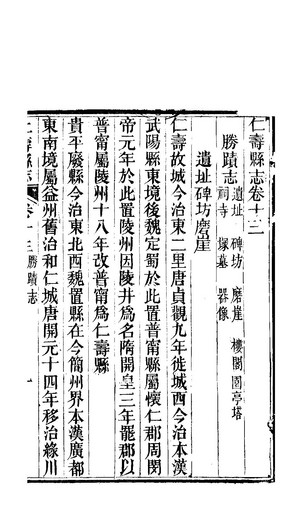 仁壽縣志卷十三
勝蹟志
遺址 碑坊 磨崖 樓閣園亭塔
祠寺 塚墓 器像
遺址碑坊磨崖
仁壽故城今治東二里唐貞觀九年徙城西今治本漢
武陽縣東境後魏定蜀於此置普甯縣屬懷仁郡周閔
帝元年於此置陵州因陵井爲名隋開皇三年罷郡以
普甯屬陵州十八年改普甯爲仁壽縣
貴平廢縣今治東北西魏置縣在今簡州界本漢廣都
東南境屬益州舊治和仁城唐開元十四年移治祿川
仁壽縣志
卷十三勝蹟志
一